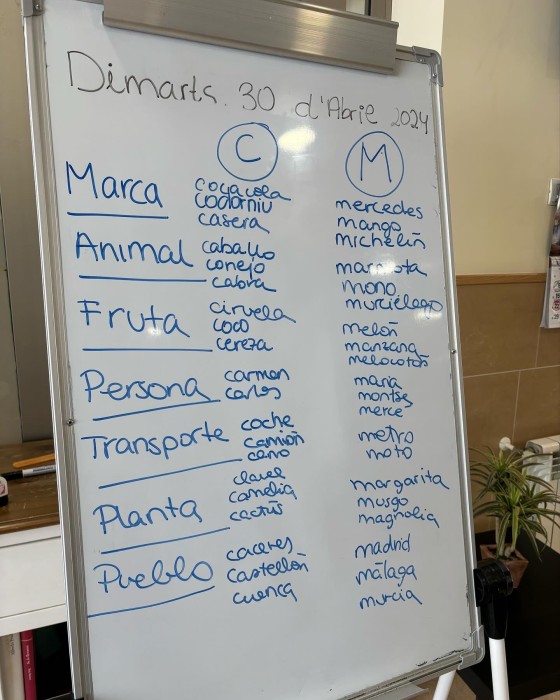 Dimarts. 30 d'Abrie 2024
C M
Marca
cocacola
codorniu
casera
mercedes
mango
michelin
Animal
caballo
conejo
cabra
marmota
mono
murciélago
Fruta
ciruela
coco
cereza
melón
manzana
melocotón
Persona
carmen
carlos
maria
montse
merce
Transporte
coche
camión
metro
moto
Planta
clavel
camelia
cactus
margarita
musgo
magnolia
Pueblo
caceres
castellón
cuenca
madrid
málaga
murcia